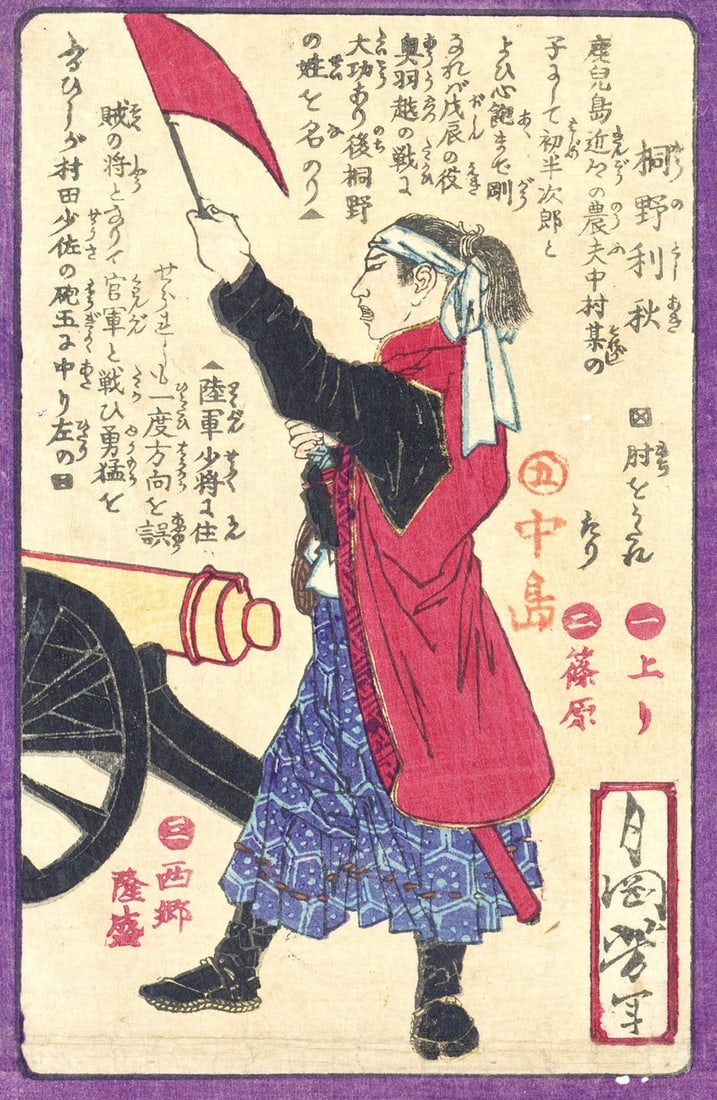 桐野利秋
鹿児島近在の農夫中村某の
子にして初半次郎と
よひ心飽まで剛
なれバ戊辰の役
奥羽越の戦に
大功あり後桐野
の姓を名のり▲
▲陸軍少将に任
せられしも一度方向を誤
賊の将となりて官軍と戦ひ勇猛を
ふるひしが村田少佐の砲玉に中り左の
肘をうたれ
たり
一 上り
二 篠原
三 西郷
隆盛
五 中島
月岡芳年